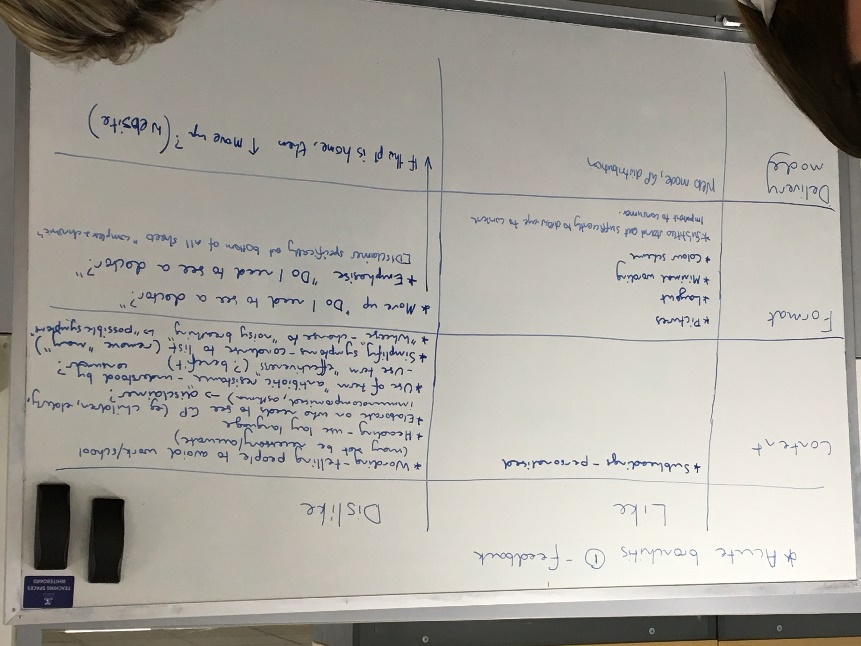 * Acute bronchitis ① - Feedback
Like
Dislike
Content
* Subheadings - personalised
* Wording - telling people to avoid work/school
(may not be necessary/accurate)
* Heading - use lay language
* Elaborate on who needs to see GP (eg. children, elderly,
immunocompromised, asthma) → disclaimer?
* Use of term "antibiotic resistance" - understood by consumer?
- Use term "effectiveness" (? benefit)
* Simplify symptoms - condense to list (remove "many")
* "Wheeze" - change to "noisy breathing" ↳ "possible symptom"
Format
* Pictures
* Layout
* Minimal wording
* Colour scheme
* Subtitles stand out sufficiently to draw eye to content
important to consumer.
* Move up "Do I need to see a doctor?"
* Emphasise "Do I need to see a doctor?"
Disclaimer specifically at bottom of all sheets "complex & chronic"
Delivery
mode
Web mode, GP distribution
If the pt is home, then ↑ move up? (Website)
TEACHING SPACES
WHITEBOARD